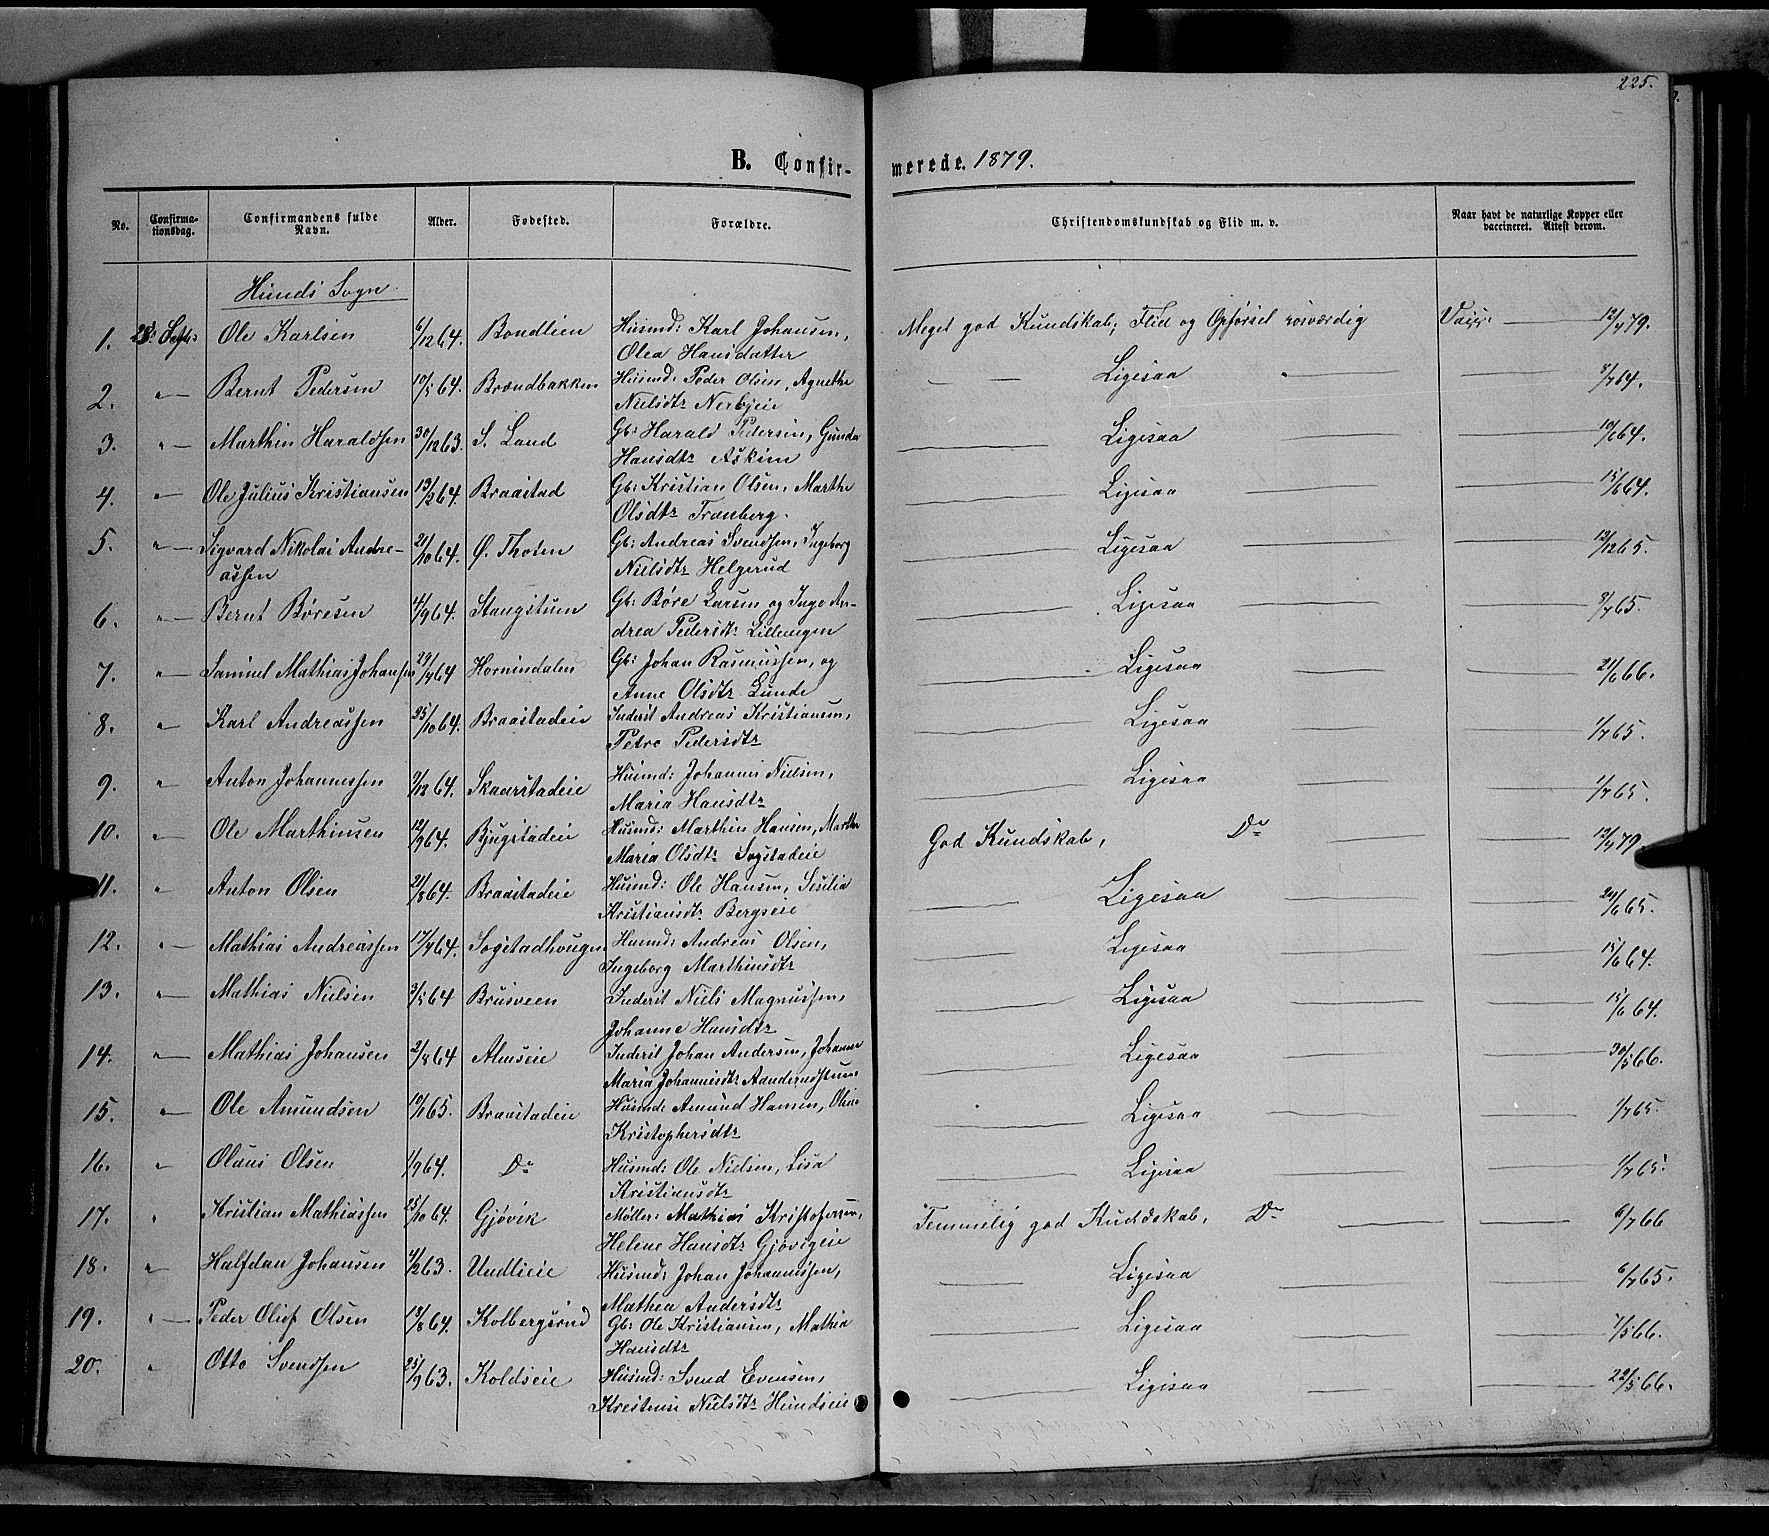 225.
B. Confirmerede. 1879.
No. Confirmationsdag. Confirmandens fulde Navn. Alder. Fødested. Forældre. Christendomskundskab og Flid m. v. Naar havt de naturlige Kopper eller vaccineret. Attest derom.
Hunds Sogn
1. 28: Septr: Ole Karlsen 6/12 64. Bondlien Husmd: Karl Johansen, Meget god Kundskab; Flid og Opførsel rosværdig Vacc: — 79.
Olea Hansdatter
2. " — Bernt Pedersen 64. Brændbakken Husmd: Peder Olsen, Agnethe — — Ligesaa — 8/7 64.
Nielsdtr
3. " — Marthin Haraldsen 30/12 63. S. Land Gb: Harald Pedersen, Gunda — Ligesaa — 10/6 64.
Hansdtr Askim
4. " — Ole Julius Kristiansen 13/2 64. Braastad Gb: Kristian Olsen, Marthe — Ligesaa — 15/6 64.
Olsdtr Tranberg.
5. " — Sigvard Nikolai Andre- 21/10 64. Ø. Thoten Gb: Andreas Svendsen, Ingeborg — Ligesaa — 12/12 65.
assen Nielsdtr Helgerud
6. " — Bernt Børesen 4/9 64. Stangstuen Gb: Børe Larsen og Inge An- — Ligesaa — 65.
drea Pedersdtr Lillengen
7. " — Samuel Mathias Johansen 29/4 64 Hornindalen Gb: Johan Rasmussen, og — Ligesaa — 21/6 66.
Anne Olsdtr Lunde
8. " Karl Andreassen 25/10 64. Braastadeie Inderst Andreas Kristiansen, — Ligesaa — 1/7 65.
Petre Pedersdtr
9. " — Anton Johannessen 64. Skaarstadeie Husmd: Johannes Nielsen, — Ligesaa — 1/7 65.
Maria Hansdtr
10. " — Ole Marthinsen 12/9 64. Bjugstadeie Husmd: Marthin Hansen, Marthe God Kundskab, Do — 79.
Maria Olsdtr Sogstadeie
11. " Anton Olsen 21/8 64. Braastadeie Husmd: Ole Hansen, Sesilia — Ligesaa — 65.
Kristiansdtr Bergseie
12. " — Mathias Andreassen 17/7 64. Sogstadhougen Husmd: Andreas Olsen, — Ligesaa — 15/6 64.
Ingeborg Marthinsdtr
13. " — Mathias Nielsen 3/5 64 Brusveen Inderst Niels Magnussen, — Ligesaa — 15/6 64.
Johanne Hansdtr
14. " — Mathias Johansen 2/8 64 Almseie Inderst Johan Andersen, Johanne — Ligesaa — 30/5 66.
Maria Johannesdtr
15. " — Ole Amundsen 10/1 65. Braastadeie Husmd: Amund Hansen, Oline — Ligesaa — 1/7 65.
Kristophersdtr
16. " Olaus Olsen 1/9 64. Do Husmd: Ole Nielsen, Lisa — Ligesaa — 1/7 65.
Kristiansdtr
17. " Kristian Mathiassen 25/10 64. Gjøvik Møller: Mathias Kristofersen, Temmelig god Kundskab, Do — 6/7 66
Helene Hansdtr Gjøvigeie
18. " Halfdan Johansen 63. Undlieie Husmd: Johan Johannessen, — Ligesaa — 6/7 65.
Mathea Andersdtr
19. " — Peder Oluf Olsen 13/8 64. Kolbergsrud Gb: Ole Kristiansen, Mathia — Ligesaa — 7/5 66.
Hansdtr
20. " Otto Svendsen 25/9 63. Koldseie Husmd: Svend Evensen, — Ligesaa — 22/5 66.
Krestense Nielsdtr Hundseie